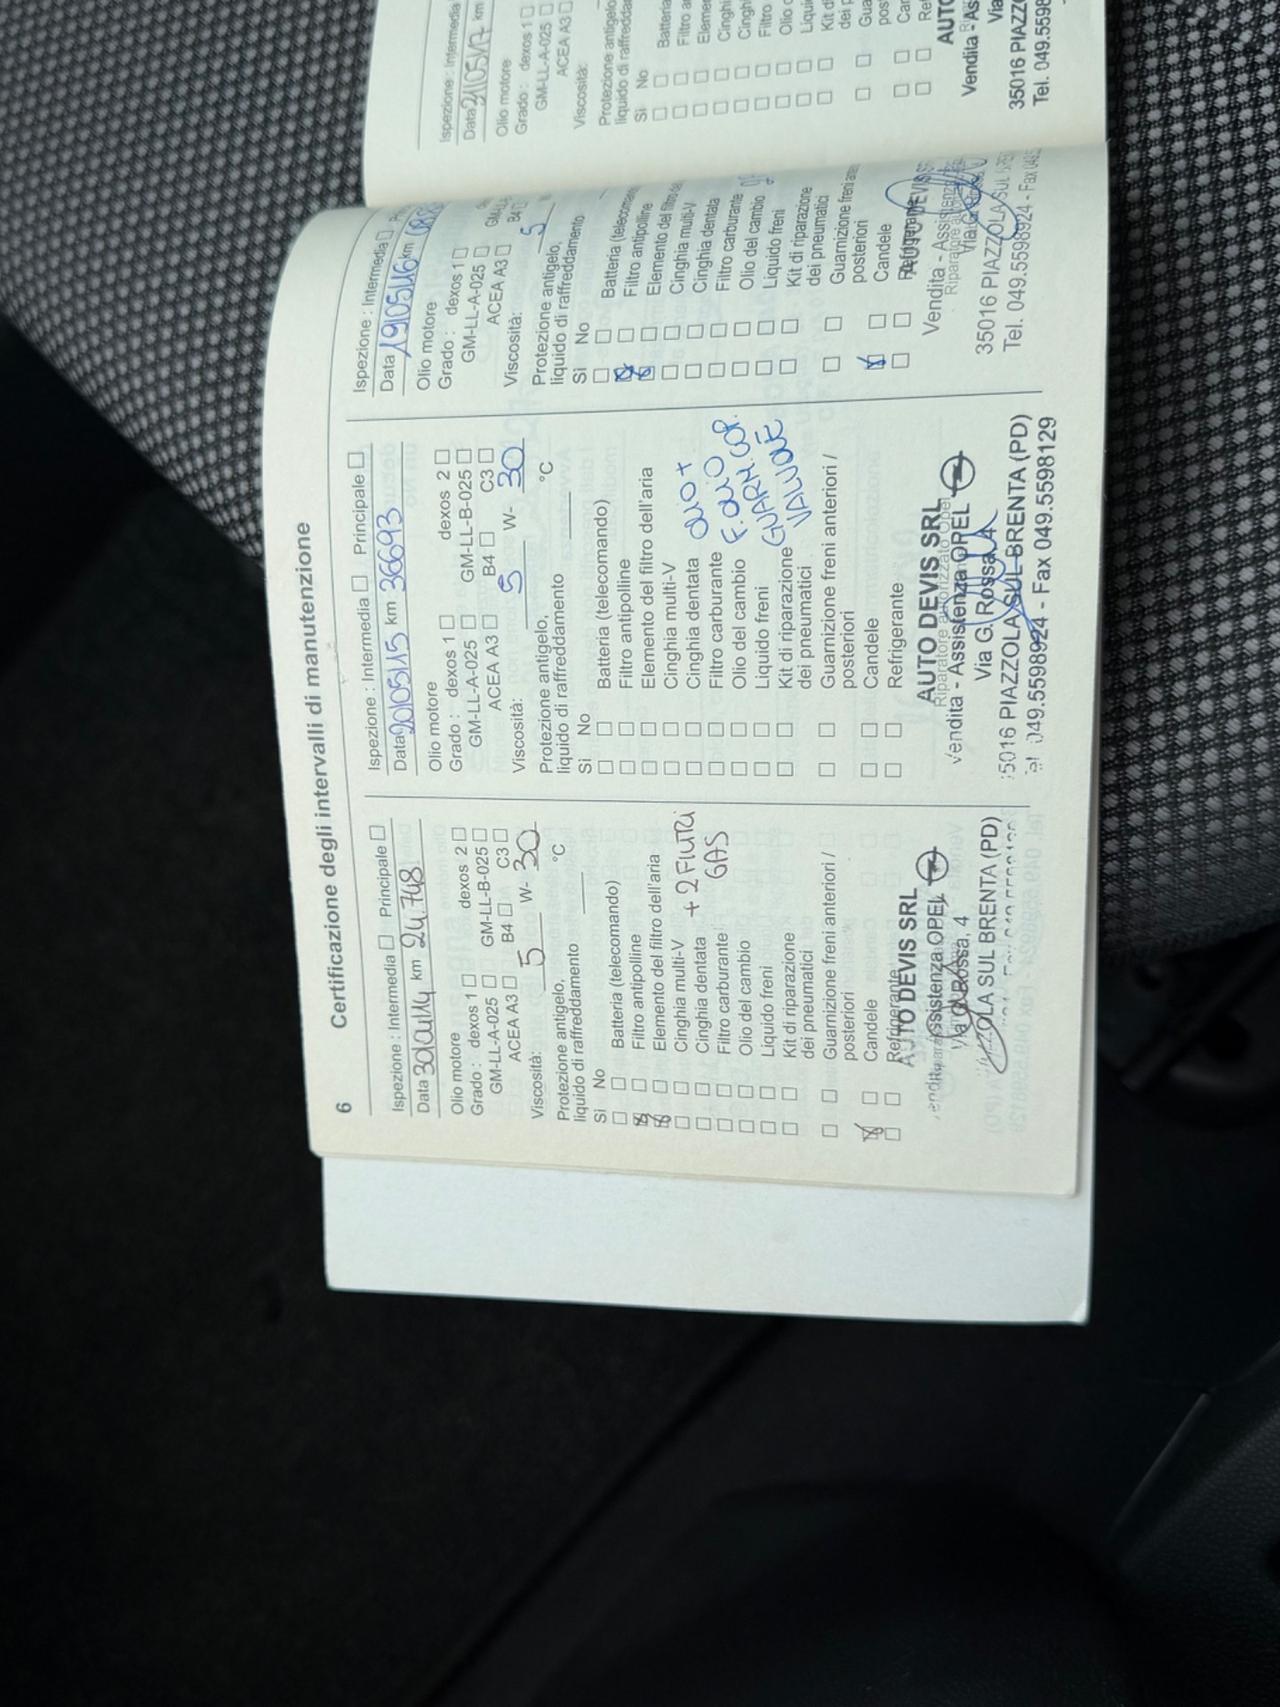 6 Certificazione degli intervalli di manutenzione
Ispezione : Intermedia ☐ Principale ☐
Data 30/01/14 km 24.748
Olio motore
Grado : dexos 1 ☐ dexos 2 ☐
GM-LL-A-025 ☐ GM-LL-B-025 ☐
ACEA A3 ☐ B4 ☐ C3 ☐
Viscosità: 5 W- 30
Protezione antigelo,
liquido di raffreddamento °C
Si No
☐ ☐ Batteria (telecomando)
☒ ☐ Filtro antipolline
☒ ☐ Elemento del filtro dell'aria
☐ ☐ Cinghia multi-V
☐ ☐ Cinghia dentata + 2 FILTRI
☐ ☐ Filtro carburante GAS
☐ ☐ Olio del cambio
☐ ☐ Liquido freni
☐ ☐ Kit di riparazione
dei pneumatici
☐ ☐ Guarnizione freni anteriori /
posteriori
☒ ☐ Candele
☐ ☐ Refrigerante
AUTO DEVIS SRL
Assistenza OPEL
Via G. Rossa, 4
ZOLA SUL BRENTA (PD)
Ispezione : Intermedia ☐ Principale ☐
Data 20/05/15 km 36693
Olio motore
Grado : dexos 1 ☐ dexos 2 ☐
GM-LL-A-025 ☐ GM-LL-B-025 ☐
ACEA A3 ☐ B4 ☐ C3 ☐
Viscosità: 5 W- 30
Protezione antigelo,
liquido di raffreddamento °C
Si No
☐ ☐ Batteria (telecomando)
☐ ☐ Filtro antipolline
☐ ☐ Elemento del filtro dell'aria
☐ ☐ Cinghia multi-V
☐ ☐ Cinghia dentata OLIO +
☐ ☐ Filtro carburante F. OLIO
☐ ☐ Olio del cambio GUARN. COP.
☐ ☐ Liquido freni VALVOLE
☐ ☐ Kit di riparazione
dei pneumatici
☐ ☐ Guarnizione freni anteriori /
posteriori
☐ ☐ Candele
☐ ☐ Refrigerante
AUTO DEVIS SRL
Riparatore autorizzato Opel
Vendita - Assistenza OPEL
Via G. Rossa, 4
35016 PIAZZOLA SUL BRENTA (PD)
Tel 049.5598924 - Fax 049.5598129
Ispezione : Intermedia ☐
Data 19/05/16 km
Olio motore
Grado : dexos 1 ☐
GM-LL-A-025 ☐
ACEA A3 ☐ B4
Viscosità: 5
Protezione antigelo,
liquido di raffreddamento
Si No
☐ ☐ Batteria
☒ ☐ Filtro antipolline
☒ ☐ Elemento del filtro
☐ ☐ Cinghia multi-V
☐ ☐ Cinghia dentata
☐ ☐ Filtro carburante
☐ ☐ Olio del cambio
☐ ☐ Liquido freni
☐ ☐ Kit di riparazione
dei pneumatici
☐ ☐ Guarnizione freni
posteriori
☒ ☐ Candele
☐ ☐ Refrigerante
AUTO DEVIS
Vendita - Assistenza
35016 PIAZZOLA SUL
Tel. 049.5598924 - Fax 049.5
Ispezione : Intermedia
Data 31/05/17 km
Olio motore
Grado : dexos 1 ☐
GM-LL-A-025 ☐
ACEA A3 ☐
Viscosità:
Protezione antigelo,
liquido di
Si No
AUTO
Vendita - Ass
Via
35016 PIAZZO
Tel. 049.5598